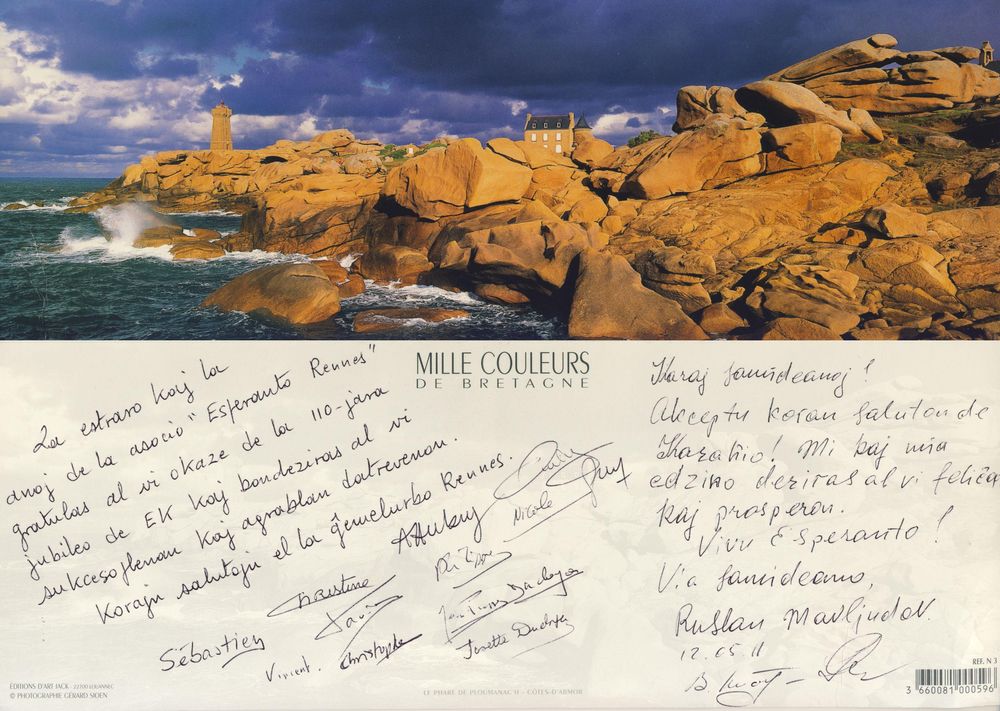 MILLE COULEURS
DE BRETAGNE
La estraro kaj la
anoj de la asocio "Esperanto Rennes"
gratulas al vi okaze de la 110-jara
jubileo de EK kaj bondeziras al vi
sukcesoplenan kaj agrablan datrevenon.
Korajn salutojn el la ĝemelurbo Rennes.
Nicole
Philippe
Christine
David
Sébastien
Vincent.
Christophe
Josette Ducloyer
Karaj samideanoj!
Akceptu koran saluton de
Kazanio! Mi kaj mia
edzino deziras al vi feliĉon
kaj prosperon.
Vivu Esperanto!
Via samideano,
Ruslan Mavljudov.
12.05.11
ÉDITIONS D'ART JACK - 22700 LOUANNEC
© PHOTOGRAPHIE GÉRARD SIOEN
LE PHARE DE PLOUMANAC'H - CÔTES-D'ARMOR
REF. N 3
3 660081 000596